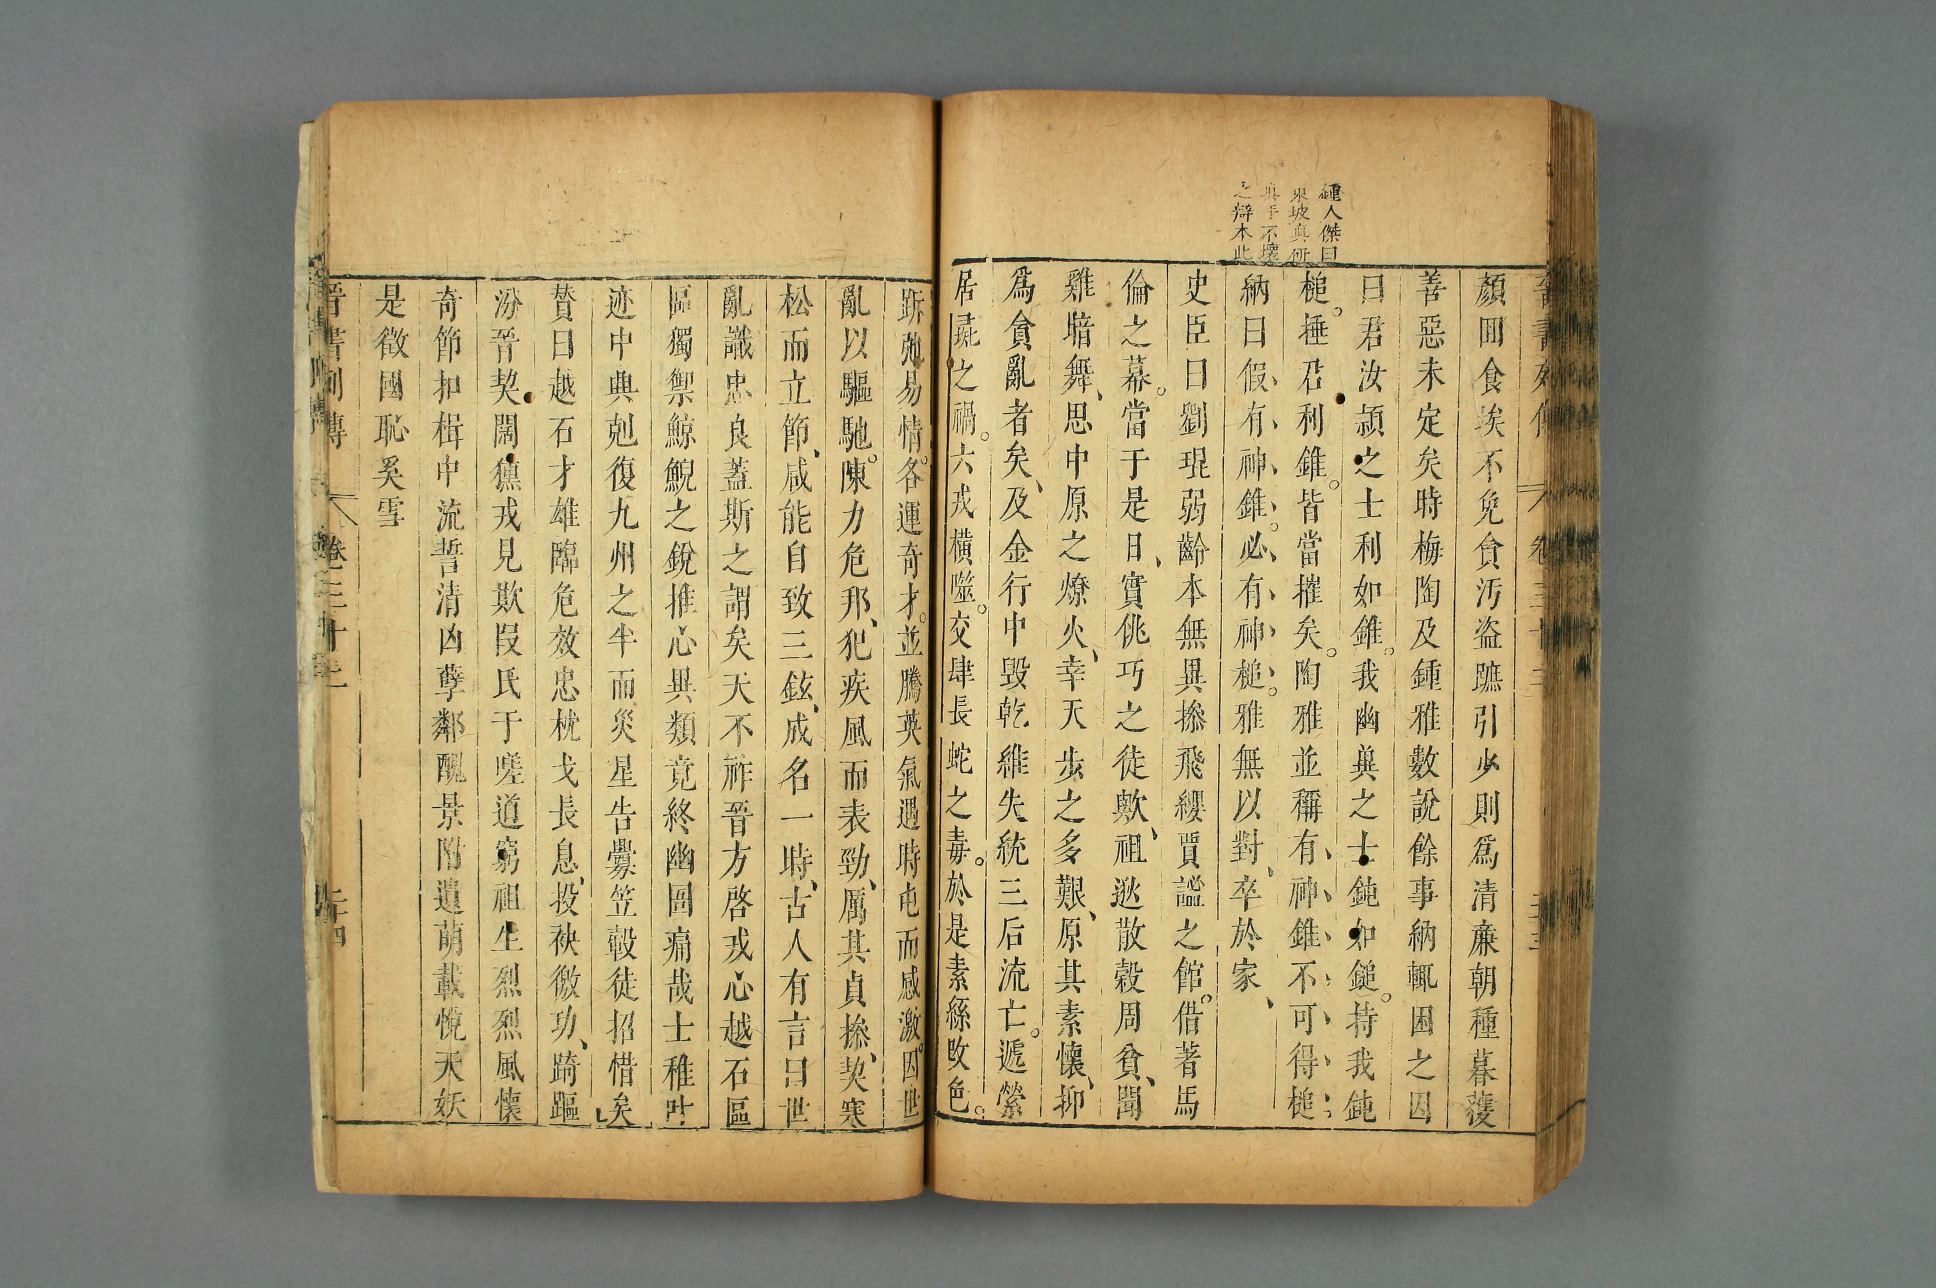 鍾人傑曰
東坡真研
真手不壞
之辯本此
晉書列傳 卷三十二
顏回食埃不免貪污盗蹠引少則爲清廉朝種暮穫
善惡未定矣時梅陶及鍾雅數說餘事納輒困之因
曰君汝潁之士利如錐。我幽兾之士鈍如鎚。持我鈍
槌。捶君利錐。皆當摧矣。陶雅並稱有神錐不可得槌
納曰假有神錐。必有神槌。雅無以對、卒於家、
史臣曰劉琨弱齡本無異操飛纓賈謐之館。借著馬
倫之幕。當于是日、實佻巧之徒歟、祖逖散穀周貧、聞
雞暗舞、思中原之燎火、幸天步之多艱、原其素懷、抑
爲貪亂者矣、及金行中毁乾維失統三后流亡。遞縈
居彘之禍。六戎橫噬。交肆長蛇之毒。於是素絲改色。
跅弛易情。各運奇才。並騰英氣遇時屯而感激。因世
亂以驅馳。陳力危邦、犯疾風而表勁、厲其貞操、契寒
松而立節、咸能自致三鉉、成名一時、古人有言曰世
亂識忠良蓋斯之謂矣天不祚晉方啓戎心越石區
區獨禦鯨鯢之銳推心異類竟終幽圄痛哉士稚叶
迹中興剋復九州之半而災星告釁笠轂徒招惜矣
贊曰越石才雄臨危效忠枕戈長息、投袂徼功、踦䟽
汾晉契闊獯戎見欺叚氏于嗟道窮祖生烈烈風懷
奇節扣楫中流誓清凶孽鄰醜景附遺萌載悅天妖
是徵國恥奚雪
晉書列傳 卷三十二 二十四